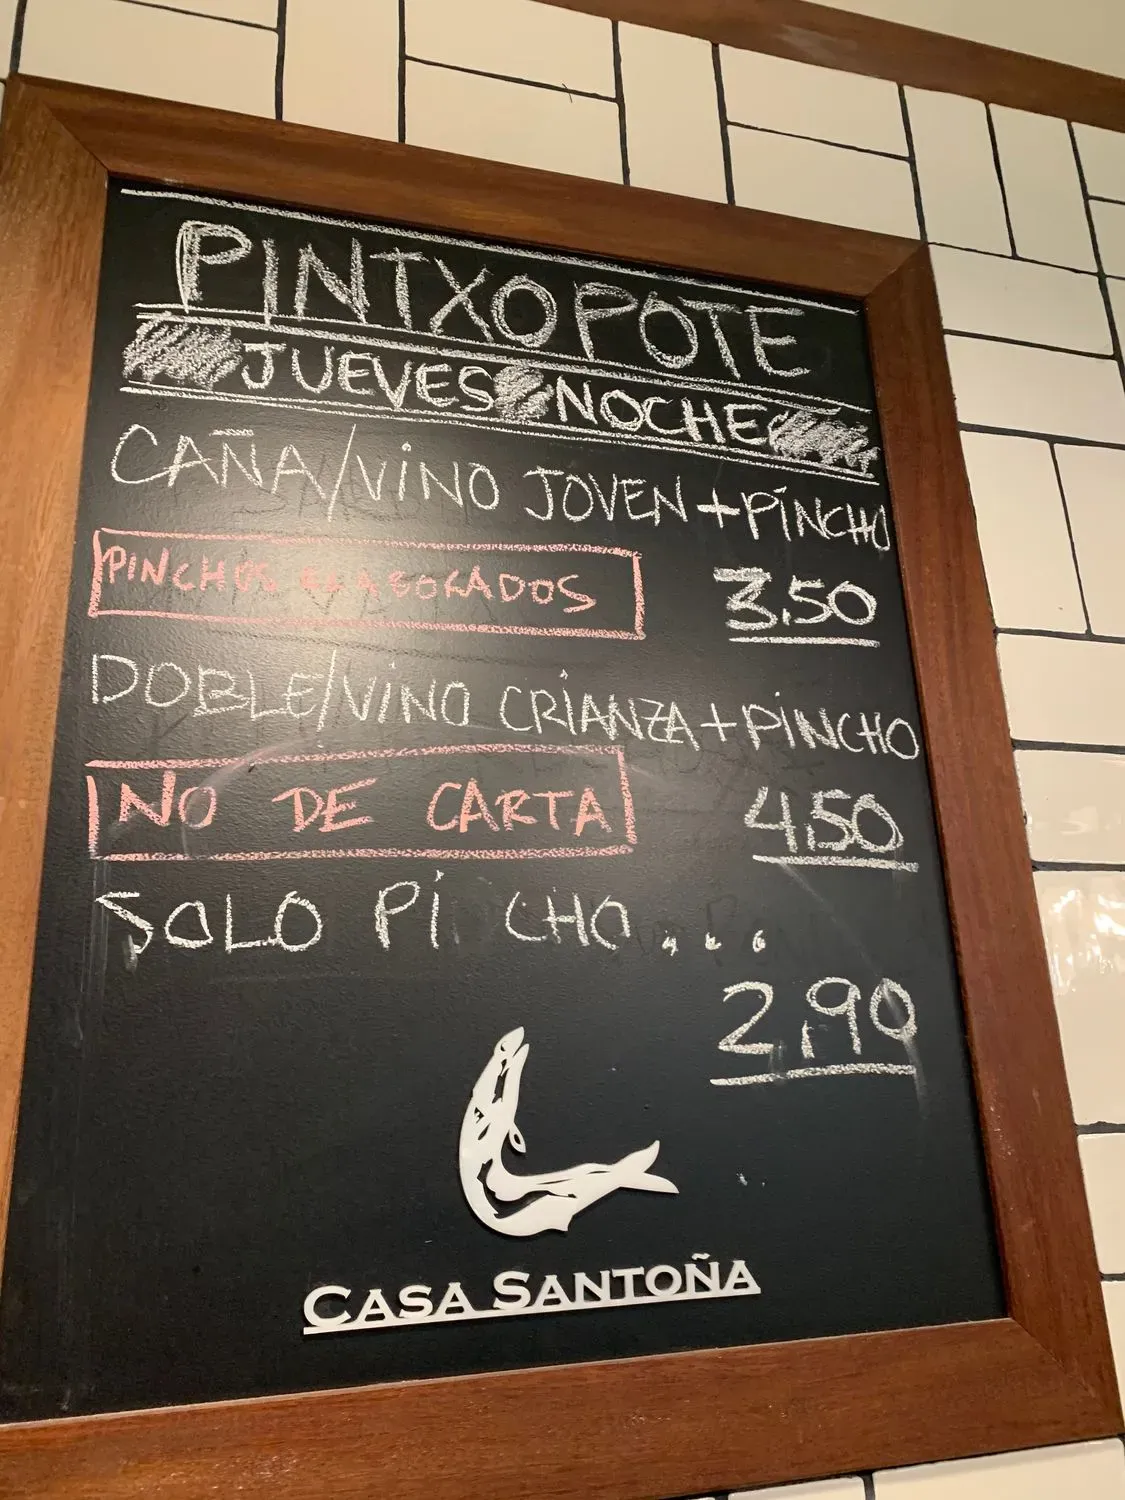 PINTXO POTE
JUEVES NOCHE
CAÑA/VINO JOVEN + PINCHO
PINCHOS ELABORADOS 3,50
DOBLE/VINO CRIANZA + PINCHO
NO DE CARTA 4,50
SOLO PI CHO....
2,90
CASA SANTOÑA